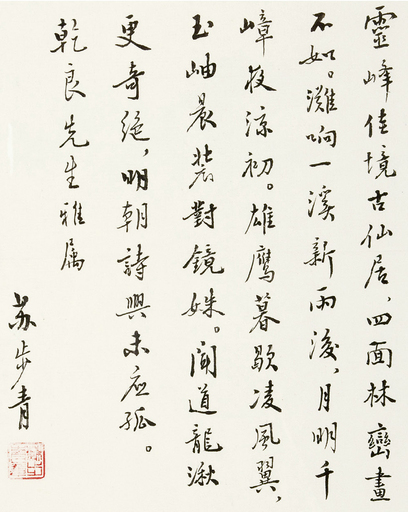 靈峰佳境古仙居、四面林巒畫
不如。灘响一溪新雨後、月明千
嶂夜涼初。雄鹰暮歇凌風翼、
玉岫晨裝對鏡姝。聞道龍湫
更奇绝，明朝詩興未应孤。
乾良先生雅属
苏步青